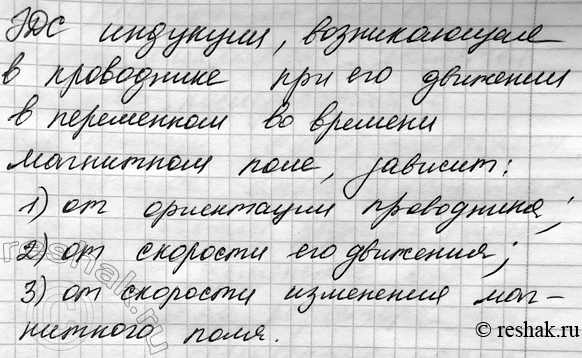 ЭДС индукции, возникающее
в проводнике при его движении
в переменном во времени
магнитном поле, зависит:
1) от ориентации проводника;
2) от скорости его движения;
3) от скорости изменения маг-
нитного поля.
reshak.ru
© reshak.ru